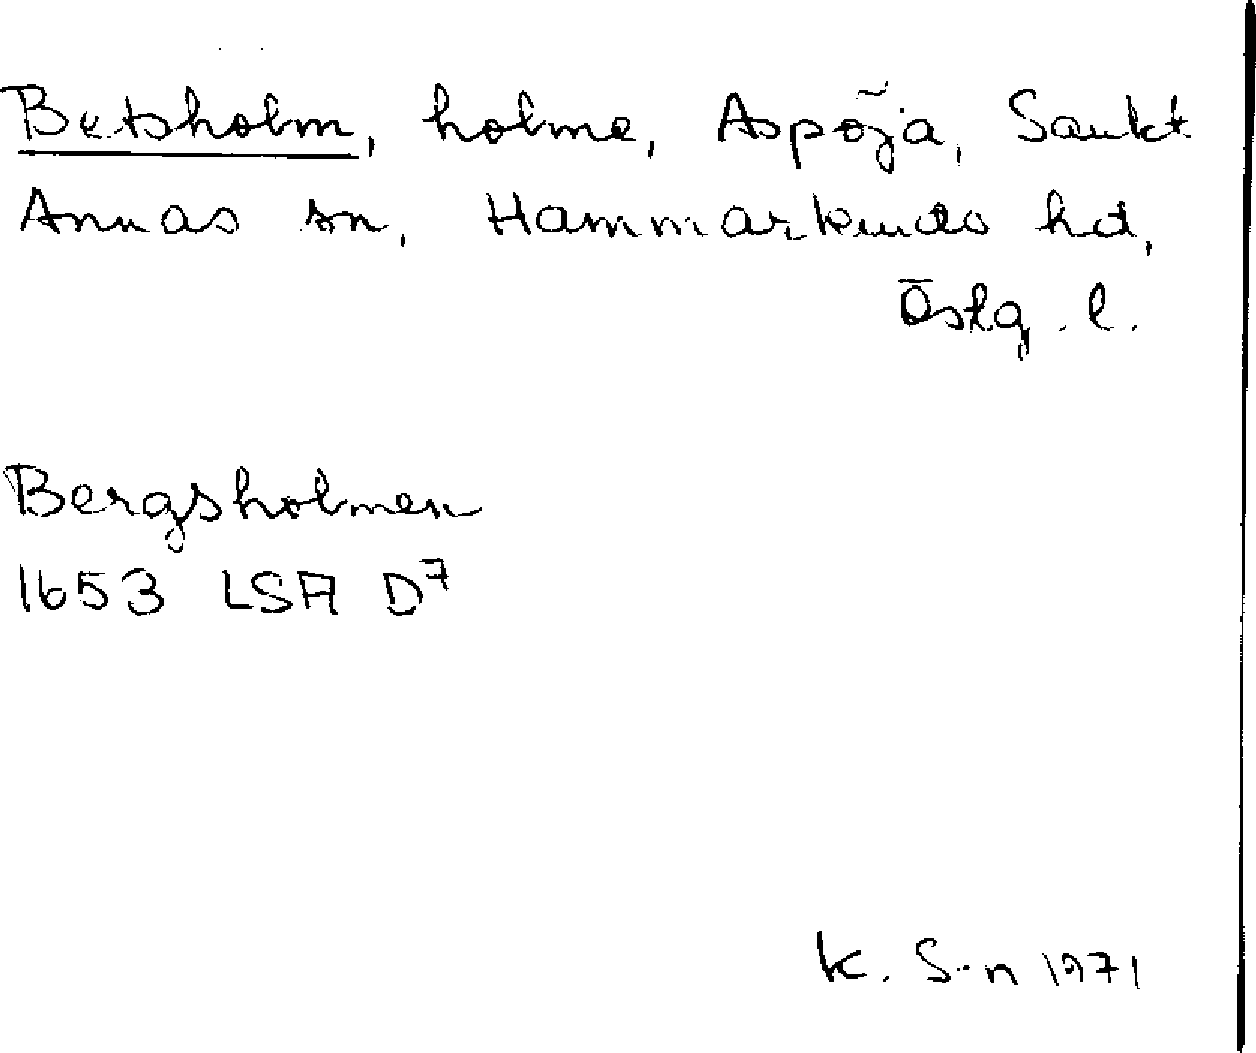 Betsholm, holme, Aspöja, Sankt
Annas sn, Hammarkinds hd,
Östg. l.
Bergsholmen
1653 LSA D7
K. S-n 1971